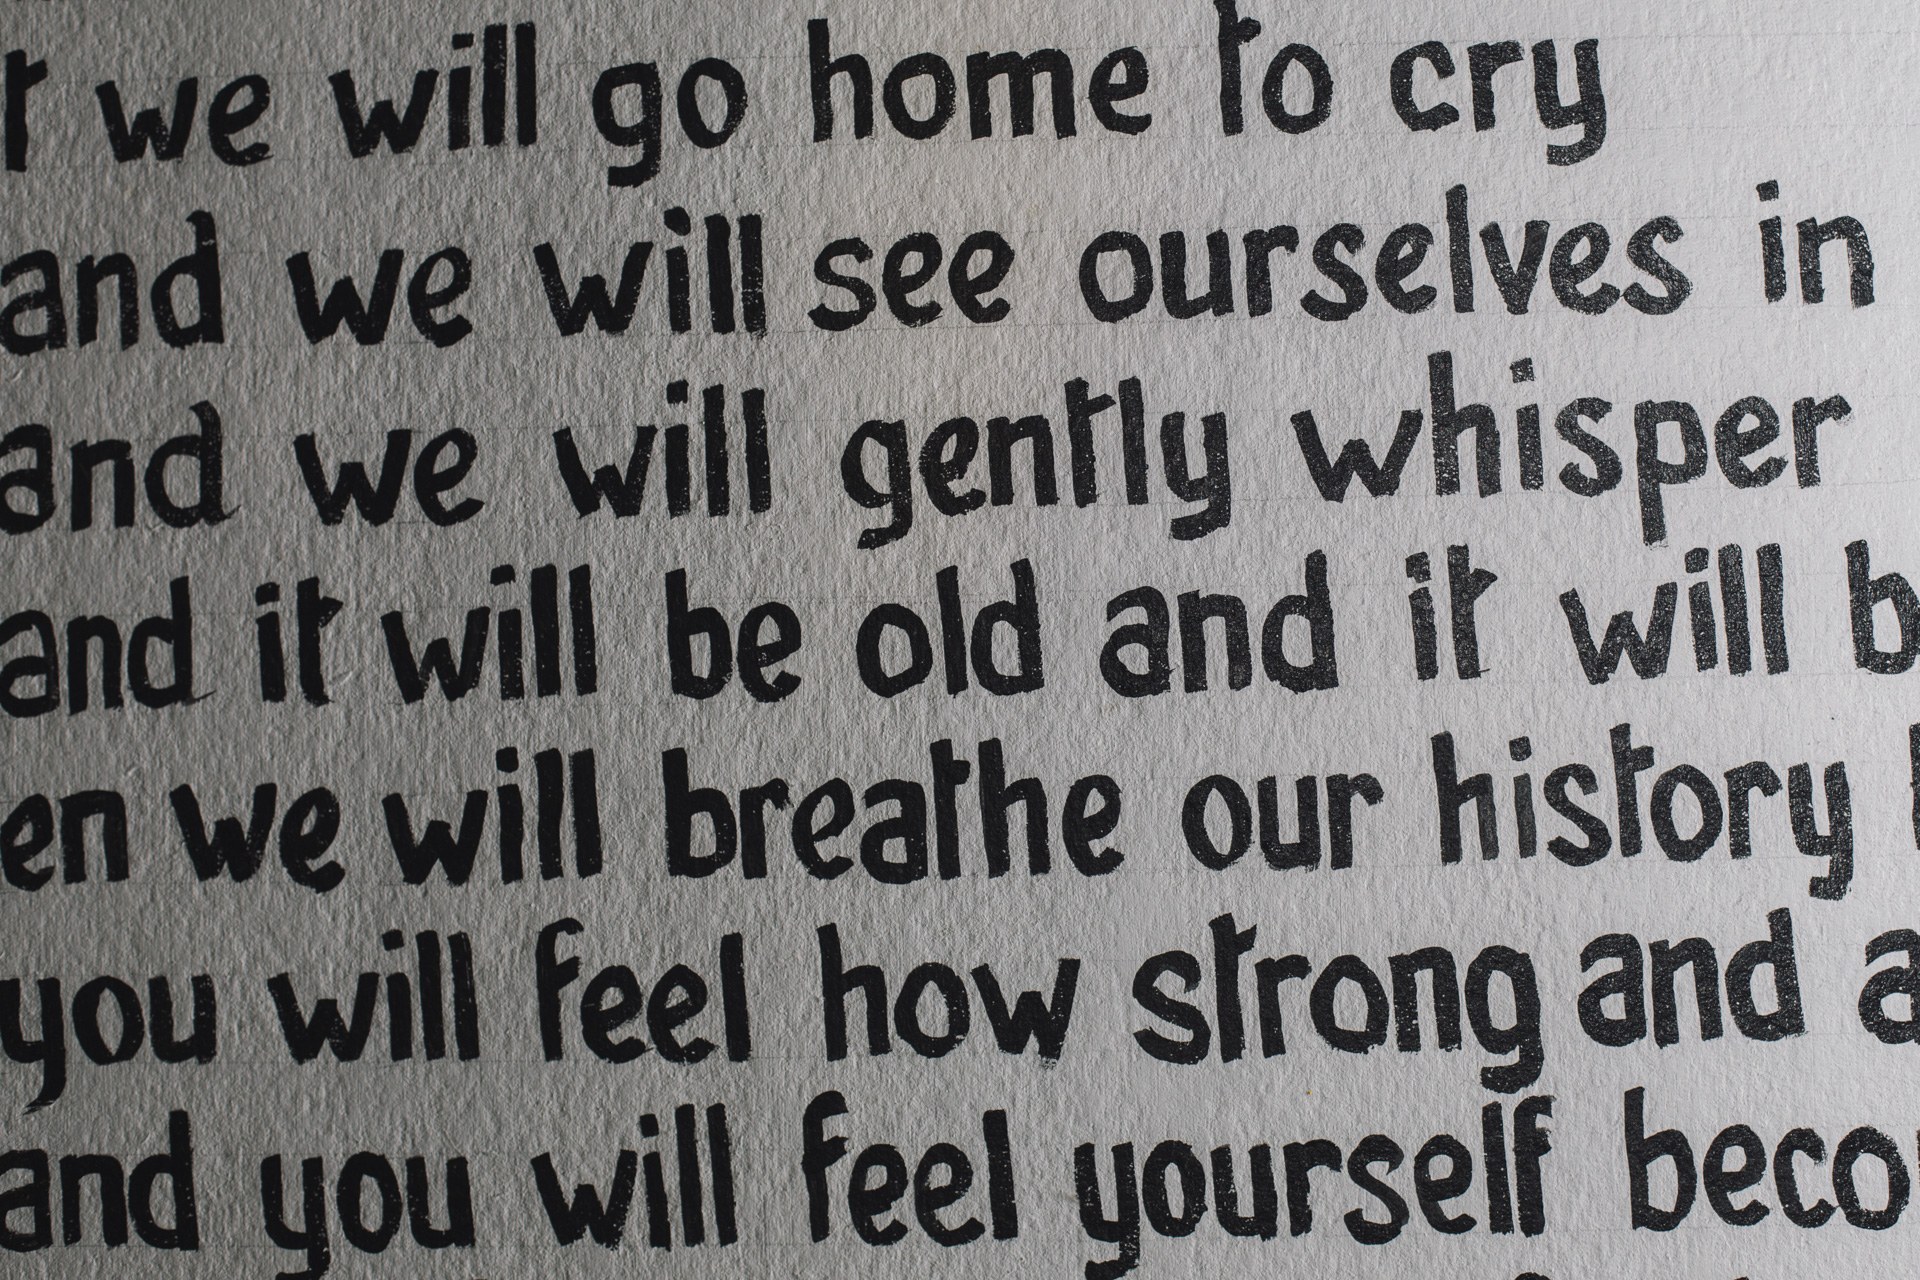 t we will go home to cry
and we will see ourselves in
and we will gently whisper
and it will be old and it will b
en we will breathe our history
you will feel how strong and a
and you will feel yourself beco